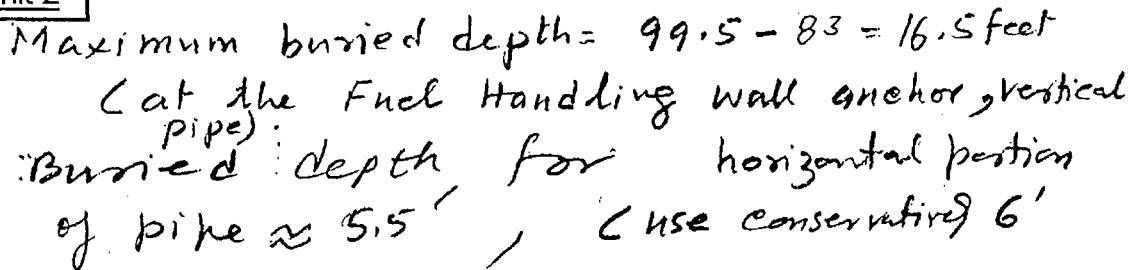 Maximum buried depth = 99.5 - 83 = 16.5 feet
(at the Fuel Handling wall anchor, vertical
pipe).
Buried depth for horizontal portion
of pipe ≈ 5.5', (use conservatively 6'